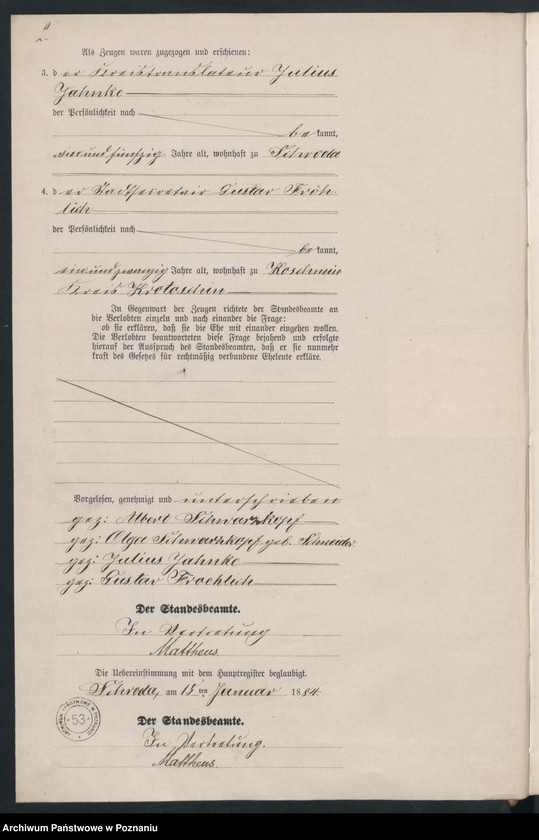 2
Als Zeugen waren zugezogen und erschienen:
3. der Kreistranslateur Julius
Jahnke
der Persönlichkeit nach
bekannt,
undfünfzig Jahre alt, wohnhaft zu Schroda
4. der Stadtsecretair Gustav Fröh-
lich
der Persönlichkeit nach
bekannt,
einundzwanzig Jahre alt, wohnhaft zu Koschmin
Kreis Krotoschin
In Gegenwart der Zeugen richtete der Standesbeamte an
die Verlobten einzeln und nach einander die Frage:
ob sie erklären, daß sie die Ehe mit einander eingehen wollen.
Die Verlobten beantworteten diese Frage bejahend und erfolgte
hierauf der Ausspruch des Standesbeamten, daß er sie nunmehr
kraft des Gesetzes für rechtmäßig verbundene Eheleute erkläre.
Vorgelesen, genehmigt und unterschrieben
gez: Albert Schwarzkopf
gez: Olga Schwarzkopf geb.
gez: Julius Jahnke
gez: Gustav Froehlich
Der Standesbeamte.
In Vertretung
Mattheus
Die Uebereinstimmung mit dem Hauptregister beglaubigt.
Schroda, am 15ten Januar 1884.
Der Standesbeamte.
In Vertretung.
Mattheus.
53
Archiwum Państwowe w Poznaniu